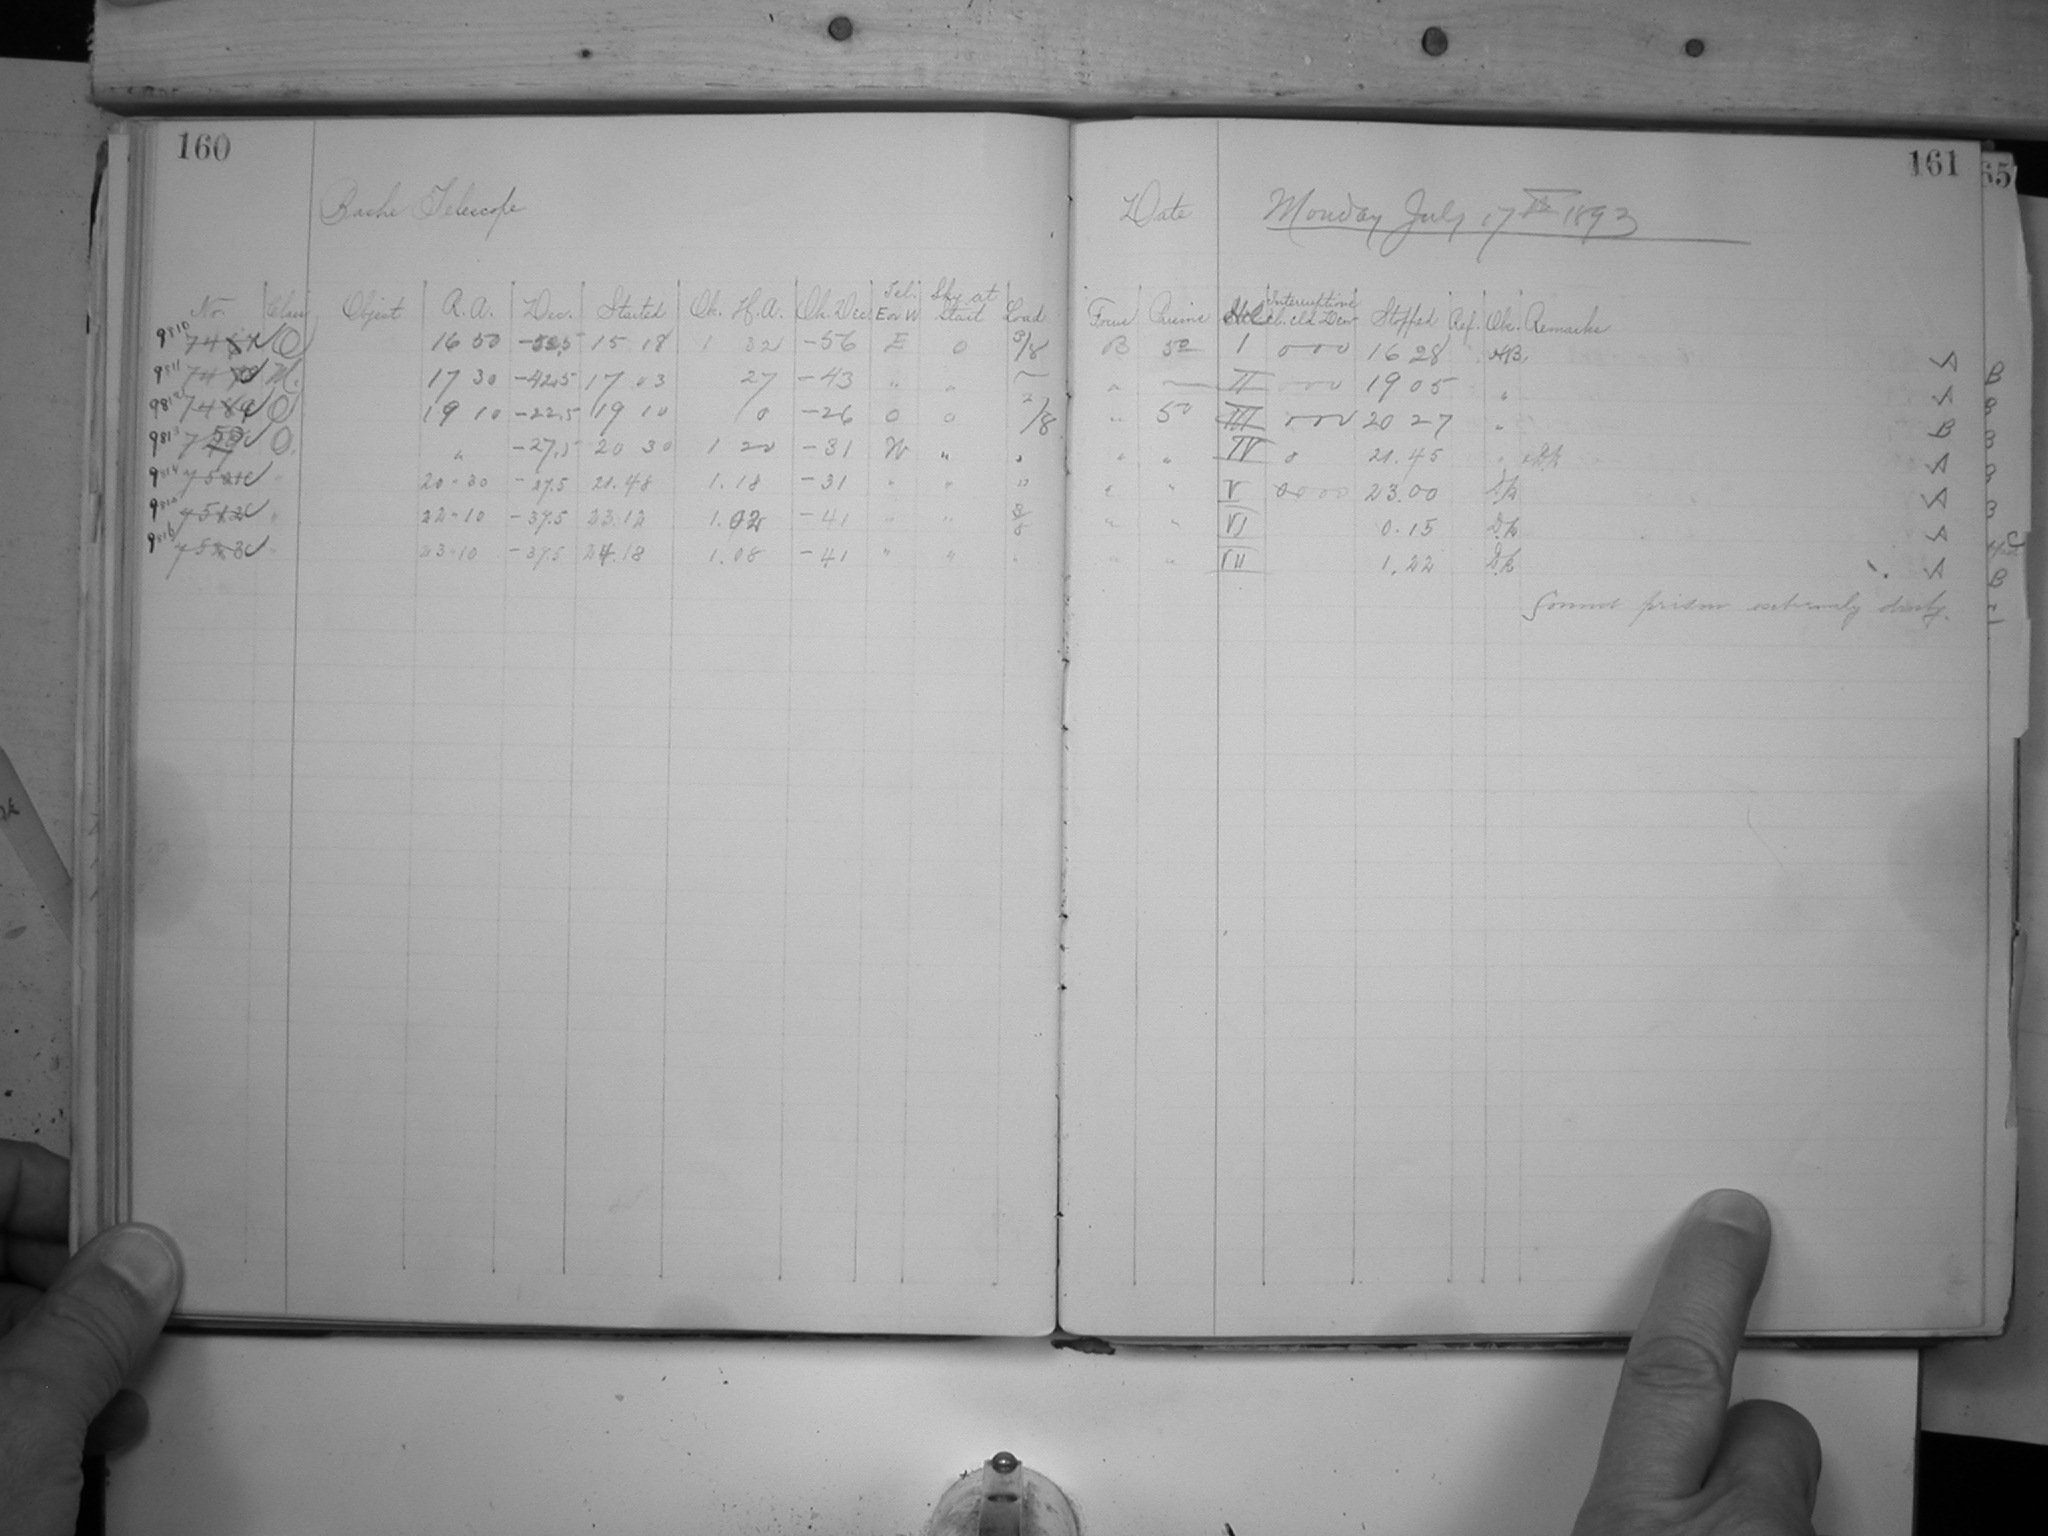 160
Bache Telescope
No. Class Object R.A. Dec. Started Ob. H.A. Ob. Dec. Tel. E or W Sky at Start Load
9810 O 16 50 -52.5 15 18 1 32 -56 E 0 3/8
9811 M. 17 30 -42.5 17 03 27 -43 " "
9812 O 19 10 -22.5 19 10 0 -26 0 0 2/8
9813 O. " -27.5 20 30 1 20 -31 W " "
9814 " 20-30 -27.5 21.48 1.18 -31 " " "
9815 7512 " 22-10 -37.5 23.12 1.02 -41 " " 8/8
9816 " 23-10 -37.5 24.18 1.08 -41 " " "
161
65
Date Monday July 17th 1893
Focus Prisms Interruptions Cl. Cld. Dew Stopped Ref. Ob. Remarks
B 50 I 0 0 0 16 28 A
" II 0 0 0 19 05 " A
" 50 III 0 0 0 20 27 " B
" " IV 0 21.45 " A
" " V 0 0 0 0 23.00 A
" " VI 0.15 A
" " VII 1.22 A
Found prism extremely dusty.
B